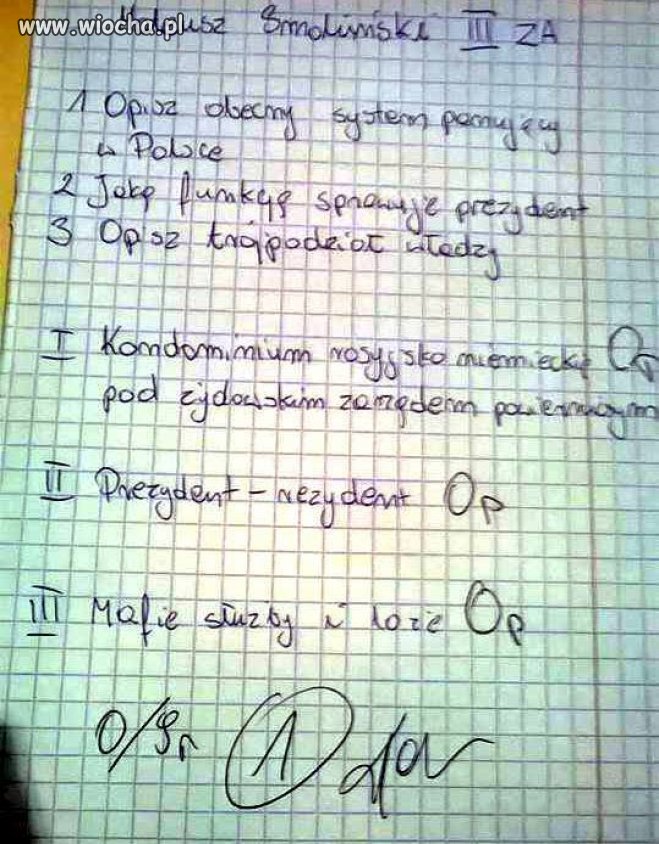 www.wiocha.pl
Smoliński III ZA
1 Opisz obecny system panujący
w Polsce
2 Jaką funkcję sprawuje prezydent
3 Opisz trójpodział władzy
I Kondominium rosyjsko niemieckie 0p
pod żydowskim zarządem powierniczym
II Prezydent - rezydent 0p
III Mafie służby i loże 0p
0/9p 1